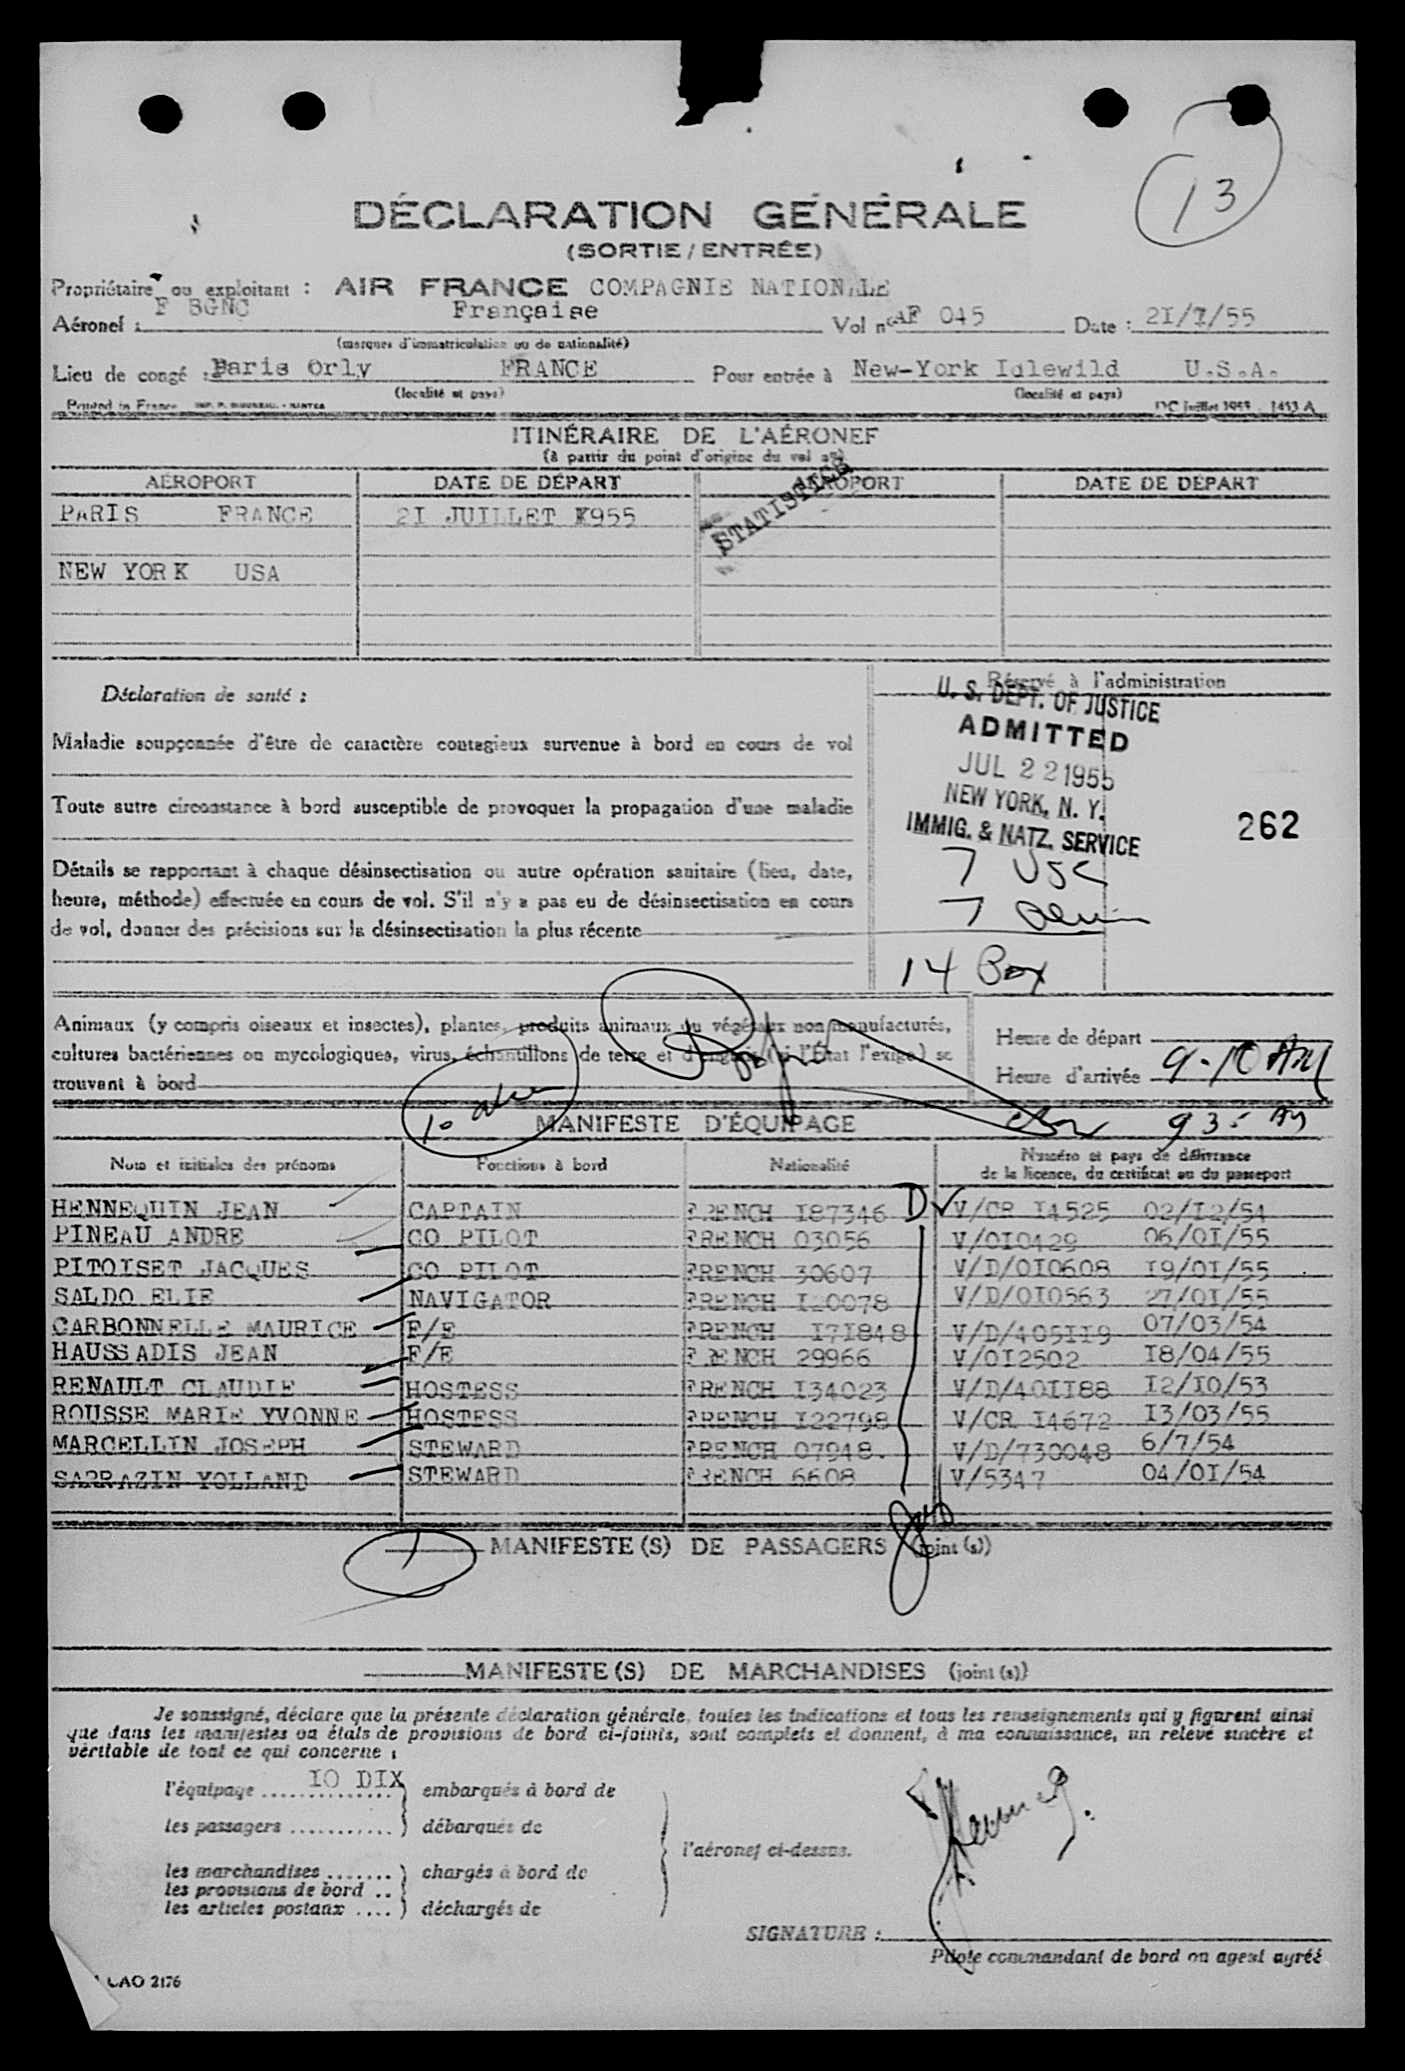 13
DÉCLARATION GÉNÉRALE
(SORTIE / ENTRÉE)
Propriétaire ou exploitant : AIR FRANCE COMPAGNIE NATIONALE
Aéronef : F BGNC Française Vol n° AF 045 Date : 2I/7/55
(marques d'immatriculation ou de nationalité)
Lieu de congé : Paris Orly FRANCE Pour entrée à New-York Idlewild U.S.A.
(localité et pays) (localité et pays)
Printed in France IMP. NANTES DC juillet 1953 1453 A
ITINÉRAIRE DE L'AÉRONEF
(à partir du point d'origine du vol au)
AÉROPORT DATE DE DÉPART AÉROPORT DATE DE DÉPART
STATISTICS
PARIS FRANCE 2I JUILLET 1955
NEW YORK USA
Déclaration de santé :
Réservé à l'administration
Maladie soupçonnée d'être de caractère contagieux survenue à bord en cours de vol
Toute autre circonstance à bord susceptible de provoquer la propagation d'une maladie
Détails se rapportant à chaque désinsectisation ou autre opération sanitaire (lieu, date,
heure, méthode) effectuée en cours de vol. S'il n'y a pas eu de désinsectisation en cours
de vol, donner des précisions sur la désinsectisation la plus récente
U. S. DEPT. OF JUSTICE
ADMITTED
JUL 22 1955
NEW YORK, N. Y.
IMMIG. & NATZ. SERVICE
262
7 USC
7 alien
14 Box
Animaux (y compris oiseaux et insectes), plantes, produits animaux ou végétaux non manufacturés,
cultures bactériennes ou mycologiques, virus, échantillons de terre et d'engrais (si l'État l'exige) se
trouvant à bord
Heure de départ
Heure d'arrivée 9-10 AM
10
MANIFESTE D'ÉQUIPAGE
935 AM
Nom et initiales des prénoms Fonctions à bord Nationalité Numéro et pays de délivrance
de la licence, du certificat ou du passeport
HENNEQUIN JEAN CAPTAIN FRENCH I87346 D V/CR I4525 02/I2/54
PINEAU ANDRE CO PILOT FRENCH 03056 V/0I0429 06/0I/55
PITOISET JACQUES CO PILOT FRENCH 30607 V/D/0I0608 I9/0I/55
SALDO ELIE NAVIGATOR FRENCH I20078 V/D/0I0563 27/0I/55
CARBONNELLE MAURICE F/E FRENCH I7I848 V/D/405II9 07/03/54
HAUSSADIS JEAN F/E FRENCH 29966 V/0I2502 I8/04/55
RENAULT CLAUDIE HOSTESS FRENCH I34023 V/D/40II88 I2/I0/53
ROUSSE MARIE YVONNE HOSTESS FRENCH I22798 V/CR I4672 I3/03/55
MARCELLIN JOSEPH STEWARD FRENCH 07948. V/D/730048 6/7/54
SARRAZIN YOLLAND STEWARD FRENCH 6608 V/5347 04/0I/54
1
MANIFESTE (S) DE PASSAGERS (joint (s))
MANIFESTE (S) DE MARCHANDISES (joint (s))
Je soussigné, déclare que la présente déclaration générale, toutes les indications et tous les renseignements qui y figurent ainsi
que dans les manifestes ou états de provisions de bord ci-joints, sont complets et donnent, à ma connaissance, un relevé sincère et
véritable de tout ce qui concerne :
l'équipage .............. IO DIX ) embarqués à bord de
les passagers ........... ) débarqués de
l'aéronef ci-dessus.
les marchandises ....... ) chargés à bord de
les provisions de bord ..
les articles postaux .... ) déchargés de
SIGNATURE :
Pilote commandant de bord ou agent agréé
CAO 2176